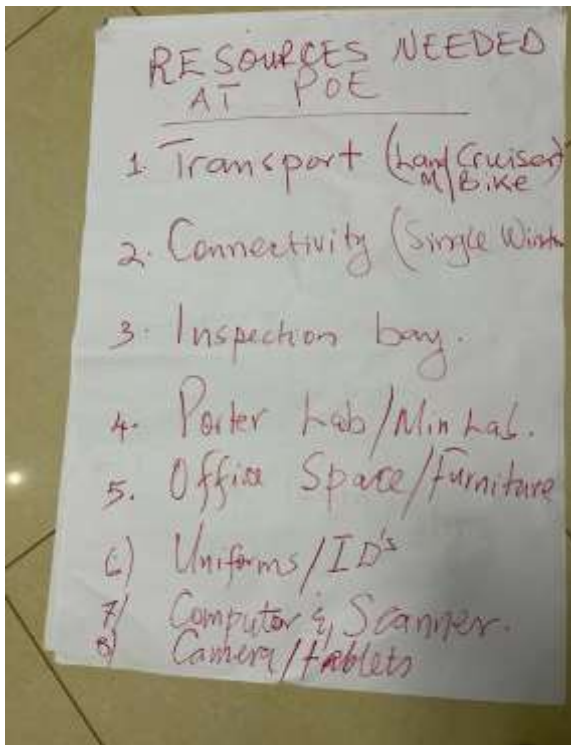 RESOURCES NEEDED
AT POE
1. Transport (Land Cruiser)
M/Bike
2. Connectivity (Single
3. Inspection bay.
4. Porter Lab/Min Lab.
5. Office Space/Furniture
6) Uniforms/ID's
7) Computer & Scanner.
8) Camera/tablets